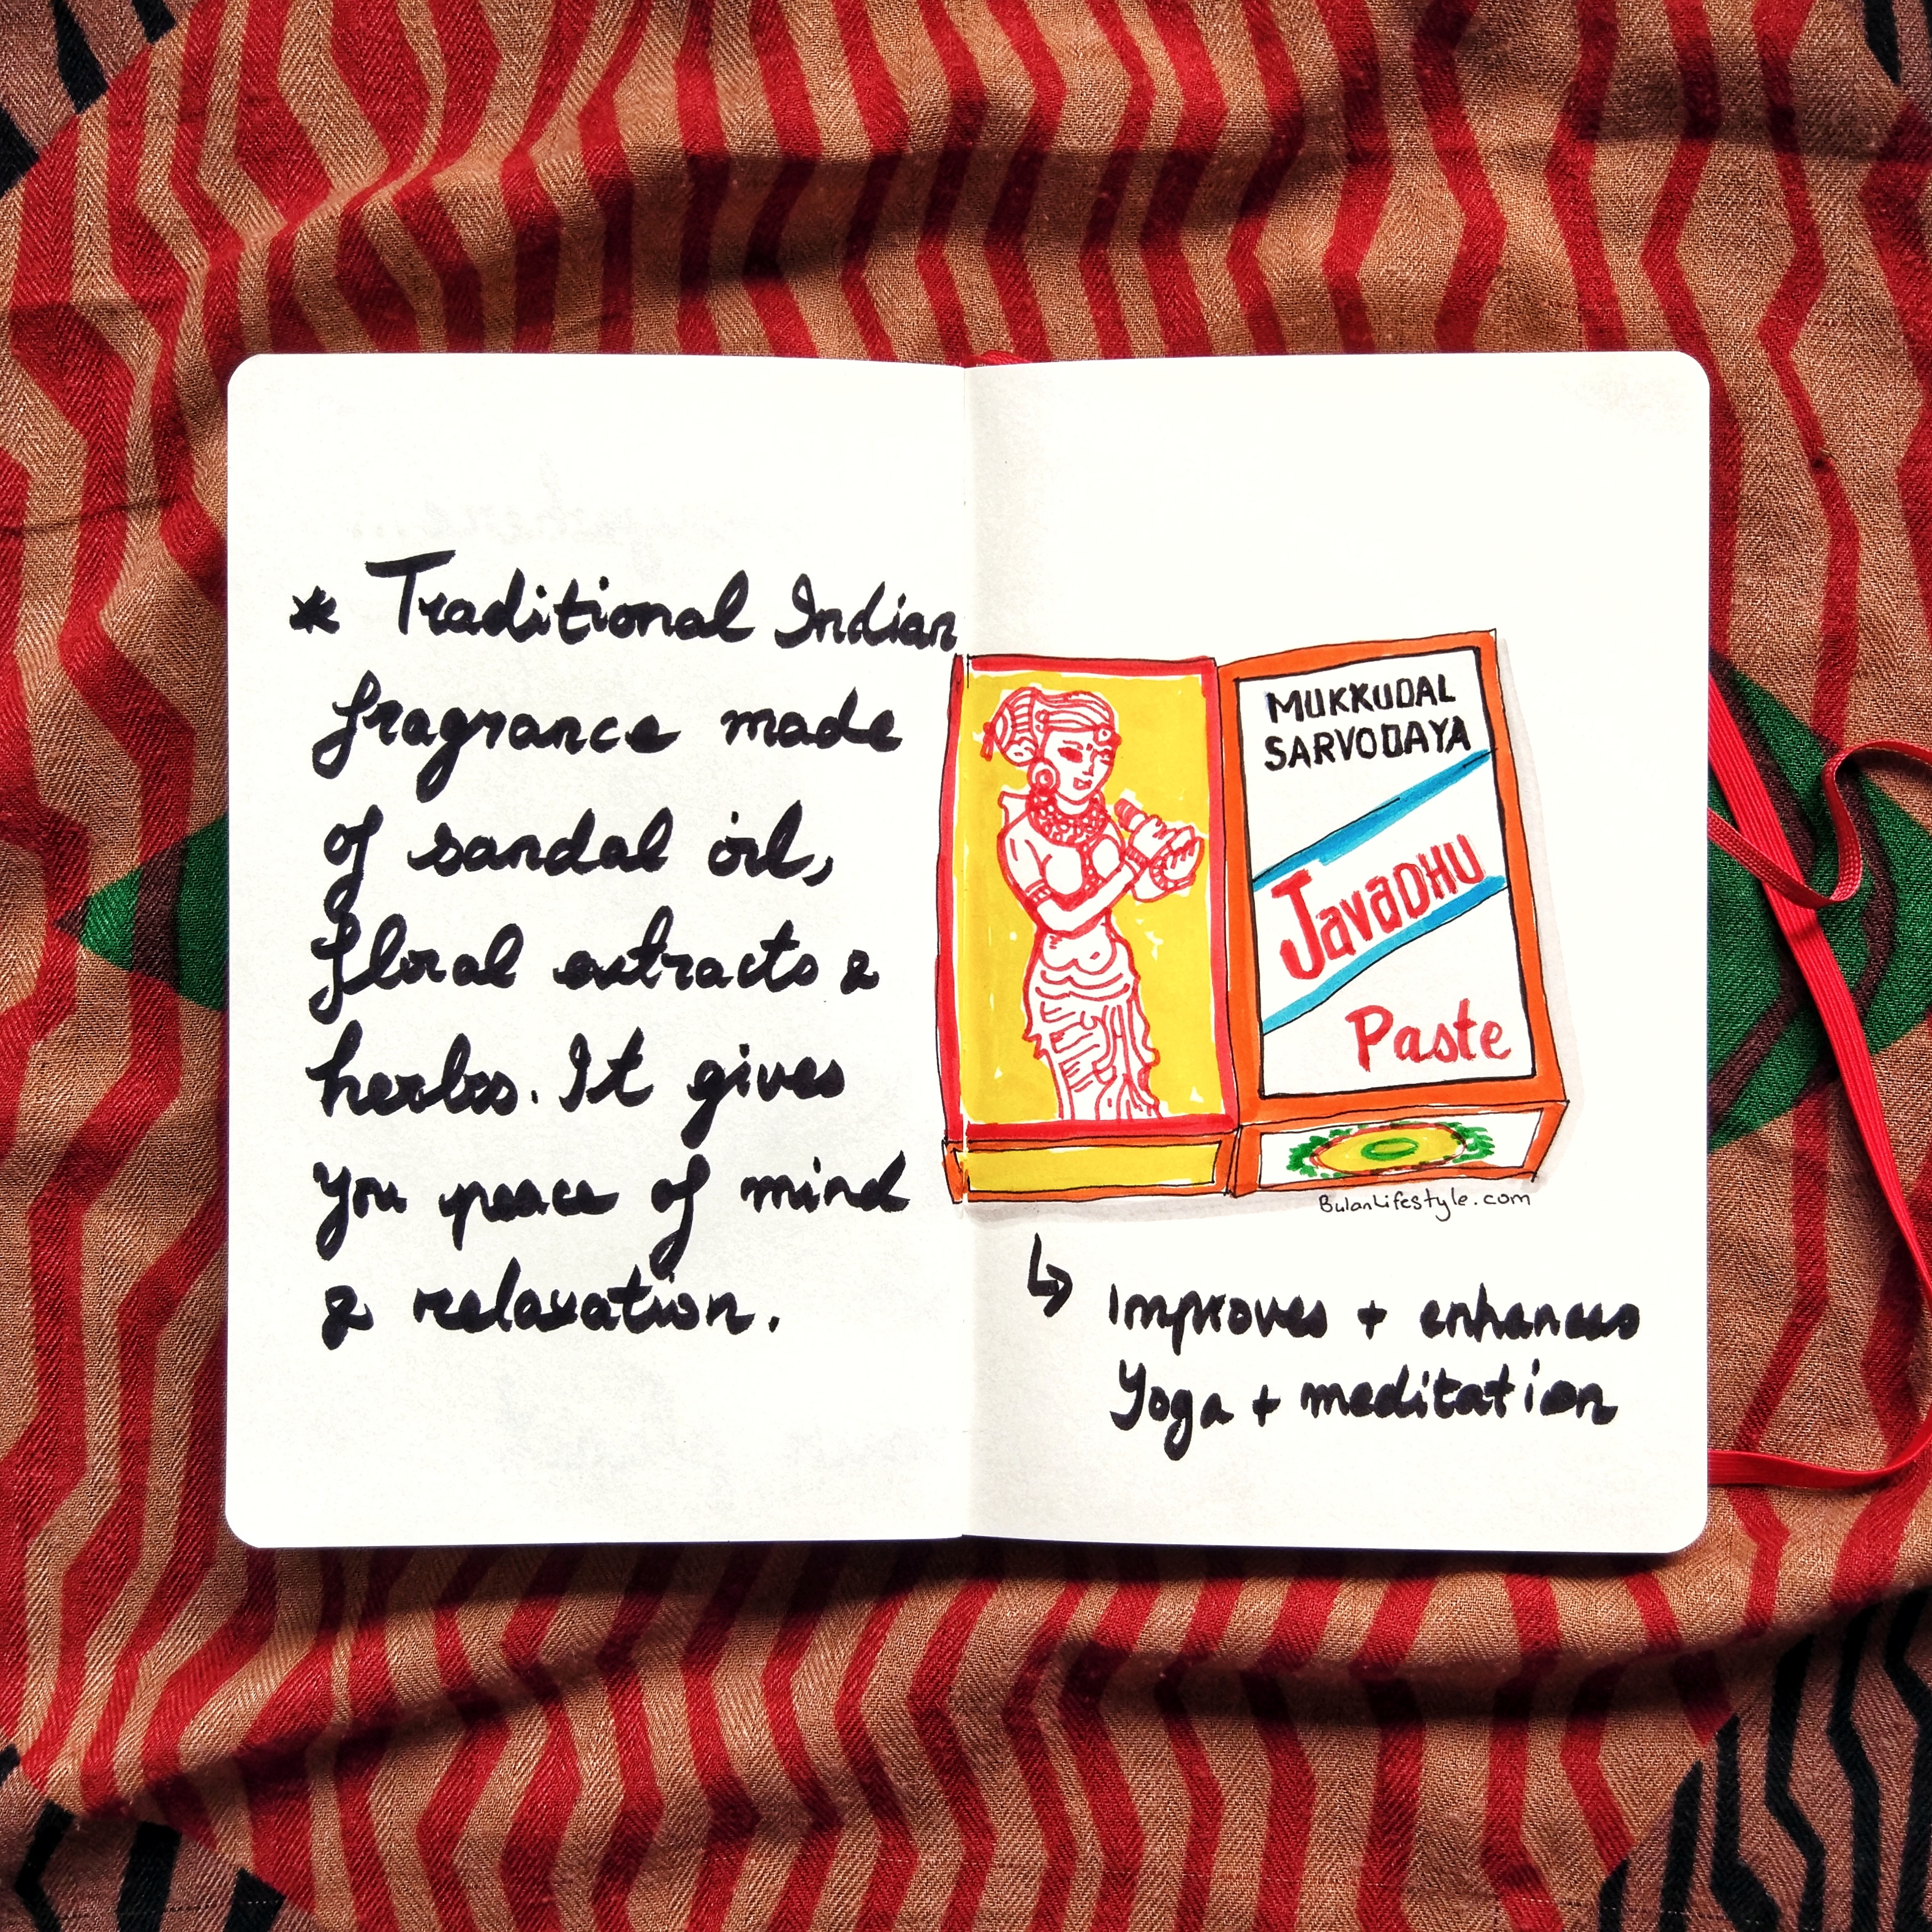 * Traditional Indian
fragrance made
of sandal oil,
floral extracts &
herbs. It gives
you peace of mind
& relaxation.
MUKKUDAL
SARVODAYA
JavaDHU
Paste
BulanLifestyle.com
↳ Improves + enhances
Yoga + meditation